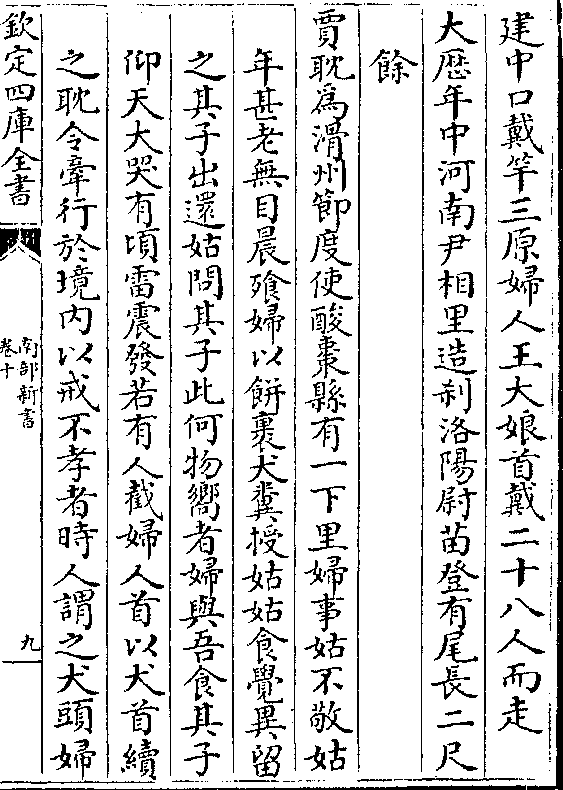 建中口戴竿三原婦人王大娘首戴二十八人而走
大厯年中河南尹相里造刹洛陽尉苗登有尾長二尺
餘
賈耽為滑州節度使酸棗縣有一下里婦事姑不敬姑
年甚老無目晨飱婦以餅裹犬糞授姑姑食覺異留
之其子出還姑問其子此何物嚮者婦與吾食其子
仰天大哭有頃雷震發若有人截婦人首以犬首續
之耽令牽行於境内以戒不孝者時人謂之犬頭婦
欽定四庫全書
南部新書
卷十
九